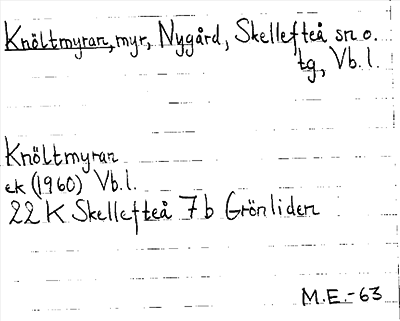 Knöltmyran, myr, Nygård, Skellefteå sn o.
tg, Vb.l.
Knöltmyran
ek (1960) Vb.l.
22 K Skellefteå 7b Grönliden
M.E.-63